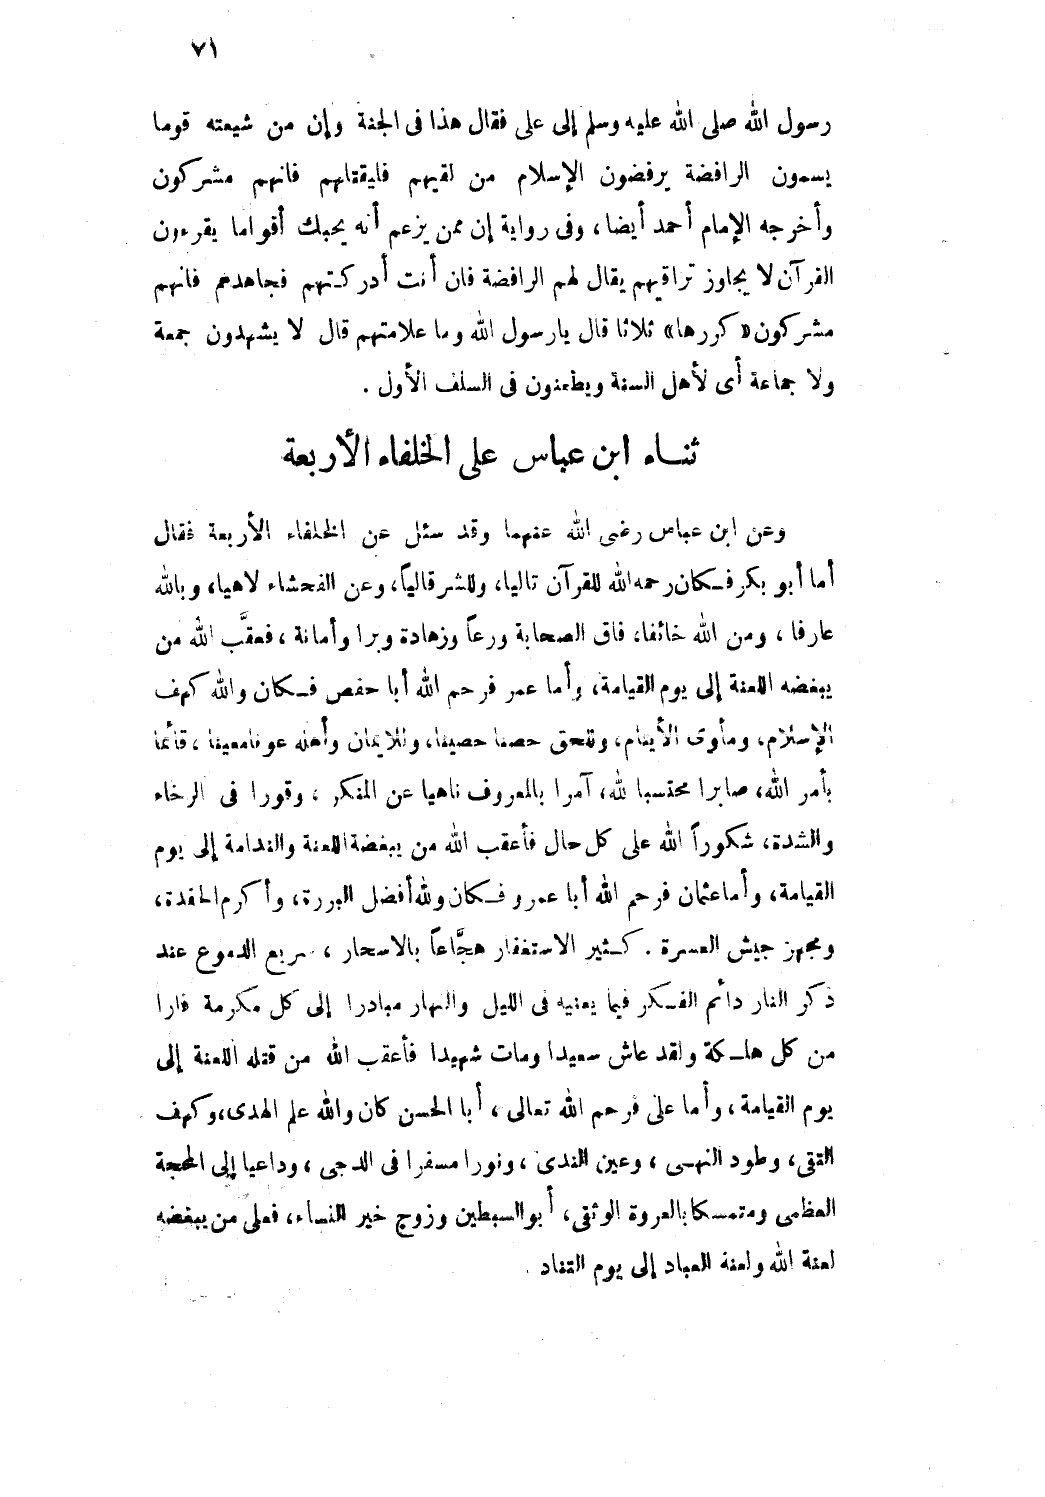 ٧١
رسول الله صلى الله عليه وسلم إلى على فقال هذا فى الجنة وإن من شيعته قوما
يسمون الرافضة يرفضون الإسلام من لقيهم فليقتلهم فانهم مشركون
وأخرجه الإمام أحمد أيضا، وفى رواية إن ممن يزعم أنه يحبك أقواما يقرءون
القرآن لا يجاوز تراقيهم يقال لهم الرافضة فان أنت أدركتهم فجاهدهم فانهم
مشركون «كررها» ثلاثا قال يارسول الله وما علامتهم قال لا يشهدون جمعة
ولا جماعة أى لأهل السنة ويطعنون فى السلف الأول .
ثنـاء ابن عباس على الخلفاء الأربعة
وعن ابن عباس رضى الله عنهما وقد سئل عن الخلفاء الأربعة فقال
أما أبو بكر فـكان رحمه الله للقرآن تاليا، وللشر قالياً، وعن الفحشاء لاهيا، وبالله
عارفا ، ومن الله خائفا، فاق الصحابة ورعاً وزهادة وبرا وأمانة ، فعقَّب الله من
يبغضه اللعنة إلى يوم القيامة، وأما عمر فرحم الله أبا حفص فـكان والله كهف
الإسلام، ومأوى الأيتام، وللحق حصنا حصينا، وللايمان وأهله عونا معينا ، قائما
بأمر الله، صابرا محتسبا لله، آمرا بالمعروف ناهيا عن المنكر ، وقورا فى الرخاء
والشدة، شكوراً الله على كل حال فأعقب الله من يبغضة اللعنة والندامة إلى يوم
القيامة، وأما عثمان فرحم الله أبا عمرو فـكان ولله أفضل البررة، وأكرم الحفدة،
ومجهز جيش العسرة . كـثير الاستغفار هجَّاعاً بالاسحار ، سريع الدموع عند
ذكر النار دائم الفـكر فيما يعنيه فى الليل والنهار مبادرا إلى كل مكرمة فارا
من كل هلـكة ولقد عاش سعيدا ومات شهيدا فأعقب الله من قتله اللعنة إلى
يوم القيامة، وأما على فرحم الله تعالى ، أبا الحسن كان والله علم الهدى، وكهف
التقى، وطود النهـى ، وعين الندى ، ونورا مسفرا فى الدجى ، وداعيا إلى المحجة
العظمى ومتمسكا بالعروة الوثقى، أبو السبطين وزوج خير النساء، فعلى من يبغضه
لعنة الله ولعنة العباد إلى يوم التناد .